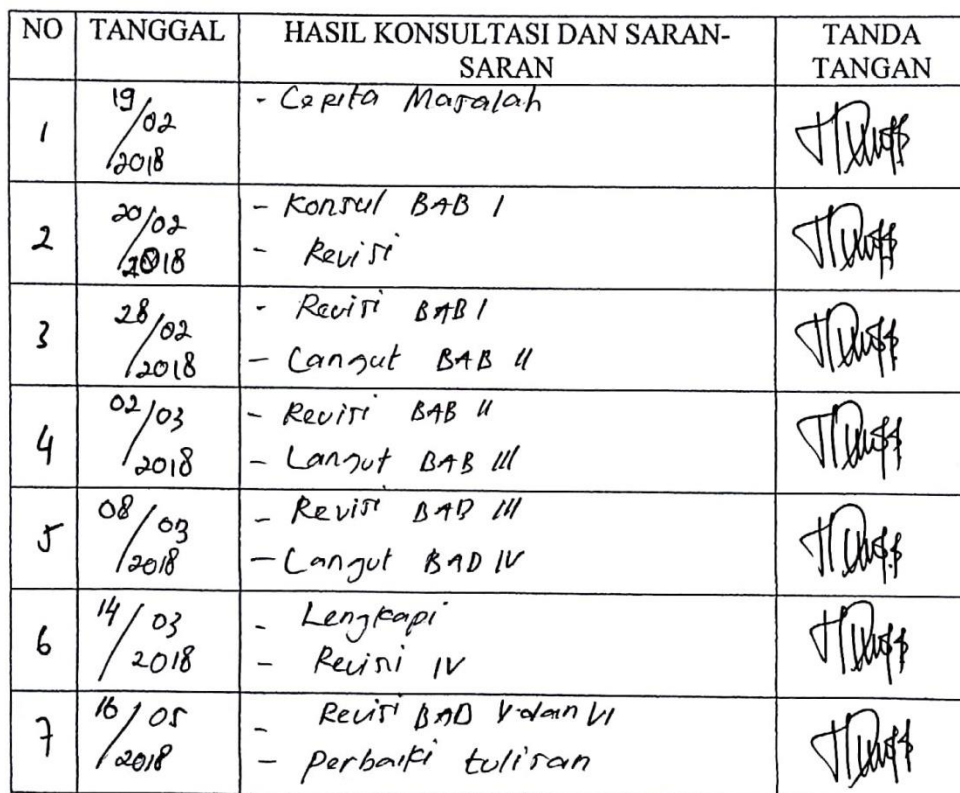 NO TANGGAL HASIL KONSULTASI DAN SARAN- TANDA
SARAN TANGAN
1 19/02/2018 - Cerita Masalah
2 20/02/2018 - Konsul BAB I
- Revisi
3 28/02/2018 - Revisi BAB I
- Lanjut BAB II
4 02/03/2018 - Revisi BAB II
- Lanjut BAB III
5 08/03/2018 - Revisi BAB III
- Lanjut BAB IV
6 14/03/2018 - Lengkapi
- Revisi IV
7 16/05/2018 - Revisi BAB V dan VI
- Perbaiki tulisan